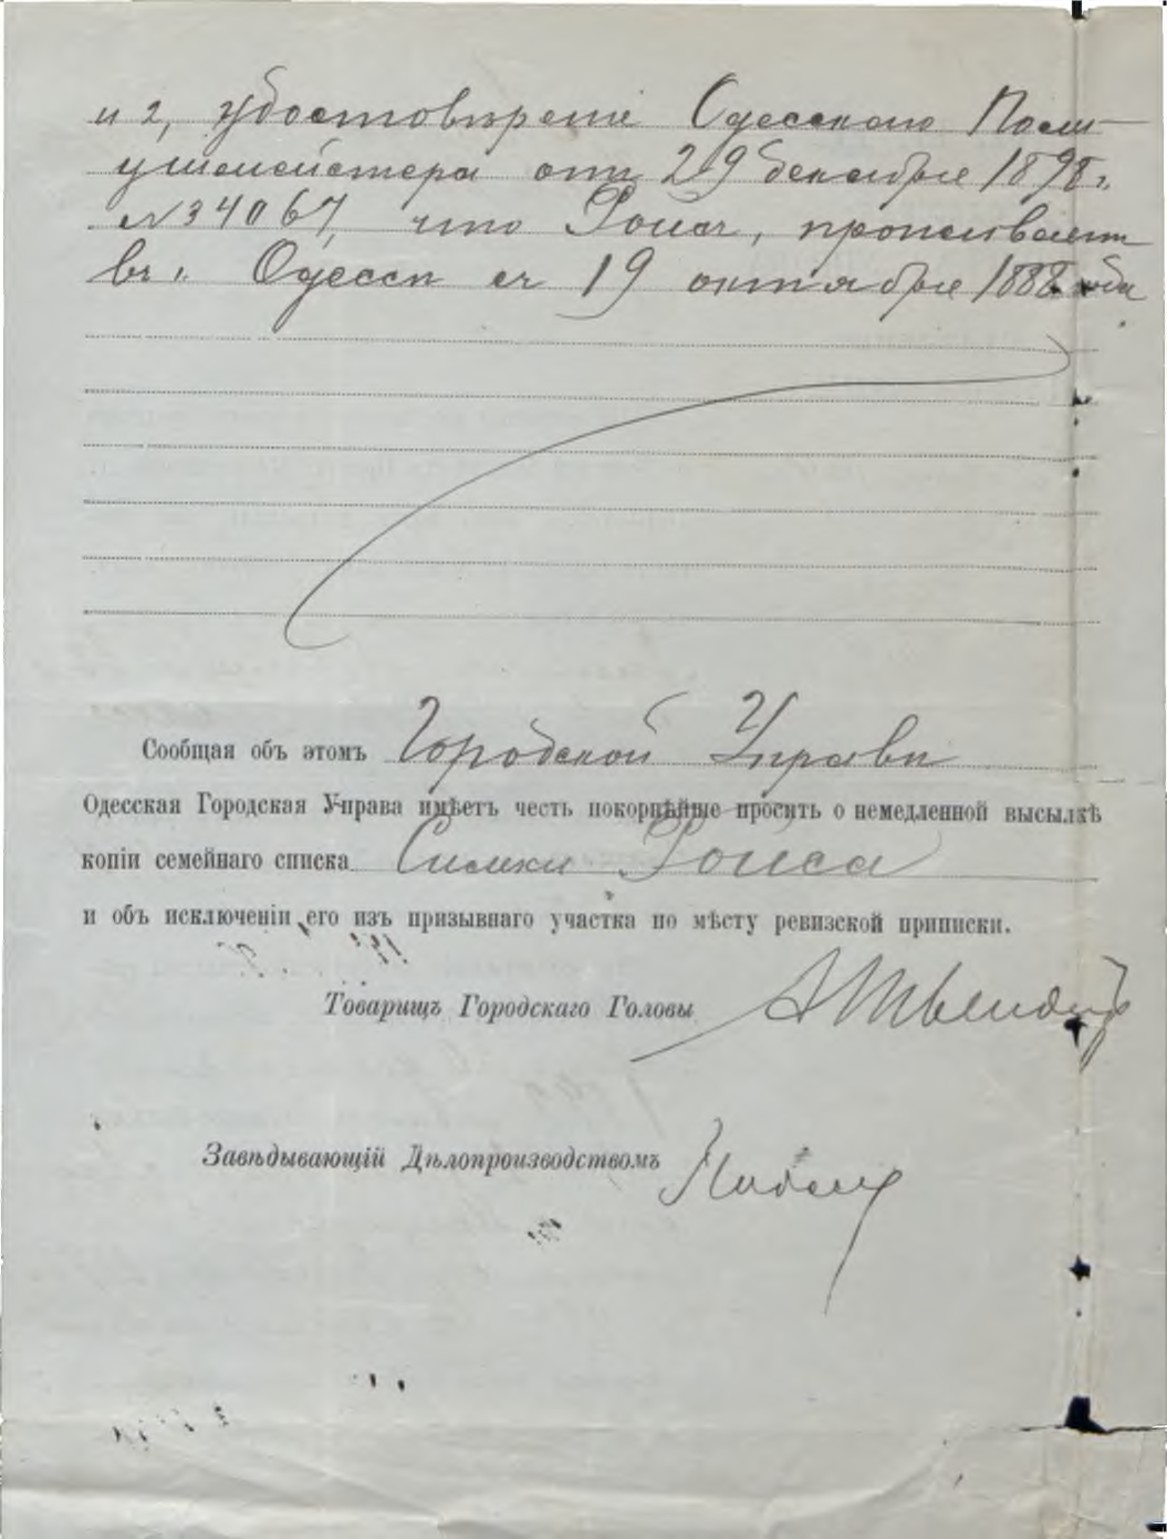 и 2, удостовѣренiе Одесского Поли-
цiймейстера отъ 29 декабря 1898 г.
№ 34067, что Роисъ, проживаетъ
въ г. Одессѣ съ 19 октября 1888 года
Сообщая объ этомъ Городской Управѣ
Одесская Городская Управа имѣетъ честь покорнѣйше просить о немедленной высылкѣ
копіи семейнаго списка Симхи Роиса
и объ исключеніи его изъ призывнаго участка по мѣсту ревизской приписки.
Товарищъ Городскаго Головы
Завѣдывающій Дѣлопроизводствомъ